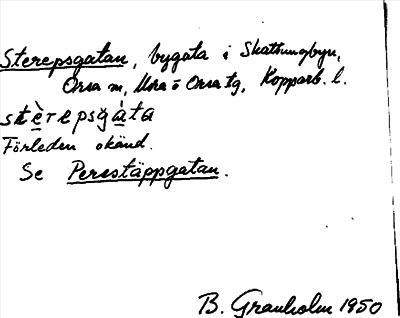 Sterepsgatan, bygata i Skattungbyn,
Orsa sn, Mora o Orsa tg, Kopparb. l.
stèrepsgàta
Förleden okänd.
Se Perestäppgatan.
B. Granholm 1950